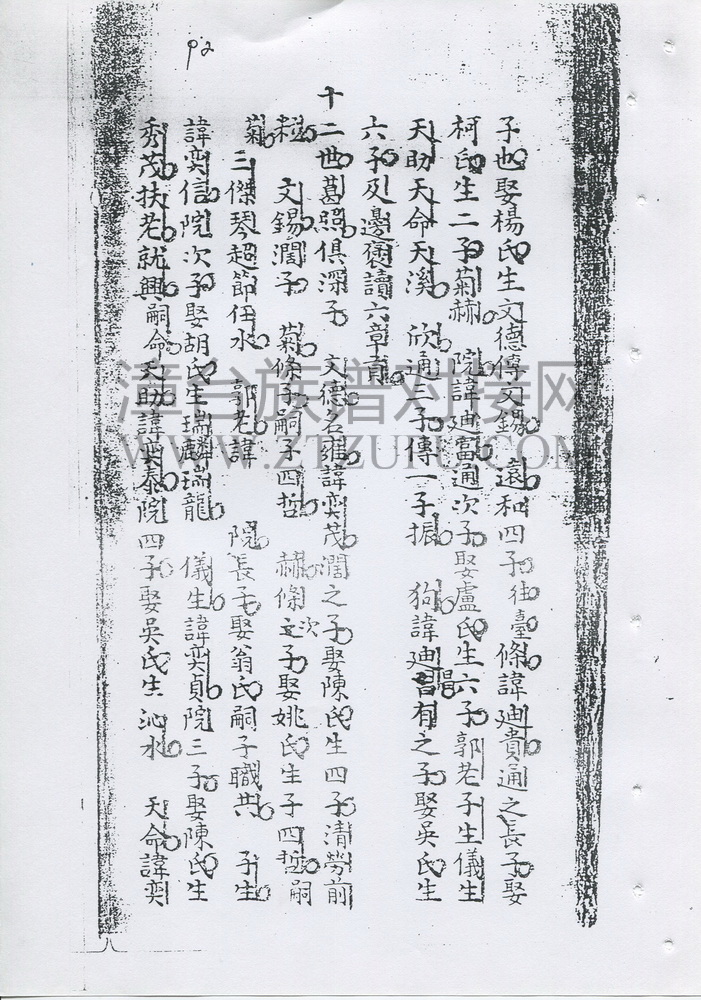 92
子也娶楊氏生文德傳文錫 遠和四子往臺條諱廸貴通之長子娶
柯氏生二子菊赫 院諱廸富通次子娶盧氏生六子郭老子生儀生
天助天命天溪 欣通三子傳一子振 狗諱廸昌有之子娶吳氏生
六子及邊褒讀六章貞
十二世葛照俱深子 文德名雍諱奕茂潤之子娶陳氏生四子清勞前
粒 文錫潤子 菊條子嗣子四哲 赫條次子娶姚氏生子四哲嗣
菊 三傑琴超節任水 郭老諱 院長子娶翁氏嗣子職共 子生
諱奕信院次子娶胡氏生瑞麟瑞龍 儀生諱奕貞院三子娶陳氏生
秀茂扶老就興嗣命天助諱奕泰院四子娶吳氏生沁水 天命諱奕
漳台族谱对接网
WWW.ZTZUPU.COM